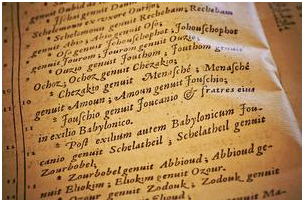 genuit Obid de
* Jischai genuit Dauid
Schelomonem ex uxore Ourije.
* Schelomonem genuit Rechebam; Rechebam
genuit Abio; Abio genuit Oso;
* Oso genuit Jehouschophot
genuit Jourom; Jourom genuit Ouzio;
* Ouzio genuit Jouthom; Jouthom genuit
Ochoz; Ochoz genuit Chezakio;
* Chezakio genuit Menasché; Menasché
genuit Amoun; Amoun genuit Jouschio;
* Jouschio genuit Joucanio & fratres eius
in exilio Babylonico.
* Post exilium autem Babylonicum Jou-
canio genuit Schelatheil; Schelatheil genuit
Zourbobel;
* Zourbobel genuit Abbioud; Abbioud ge-
nuit Eliokim; Eliokim genuit Ozour.
genuit Zodouk; Zodouk genuit
genuit Ma-